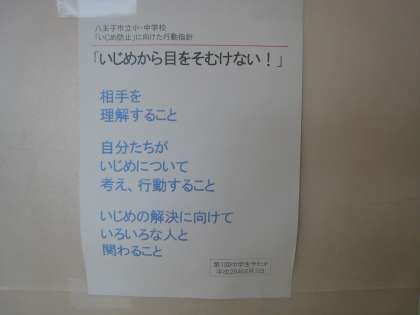 八王子市立小・中学校
「いじめ防止」に向けた行動指針
「いじめから目をそむけない！」
相手を
理解すること
自分たちが
いじめについて
考え、行動すること
いじめの解決に向けて
いろいろな人と
関わること
第1回中学生サミット